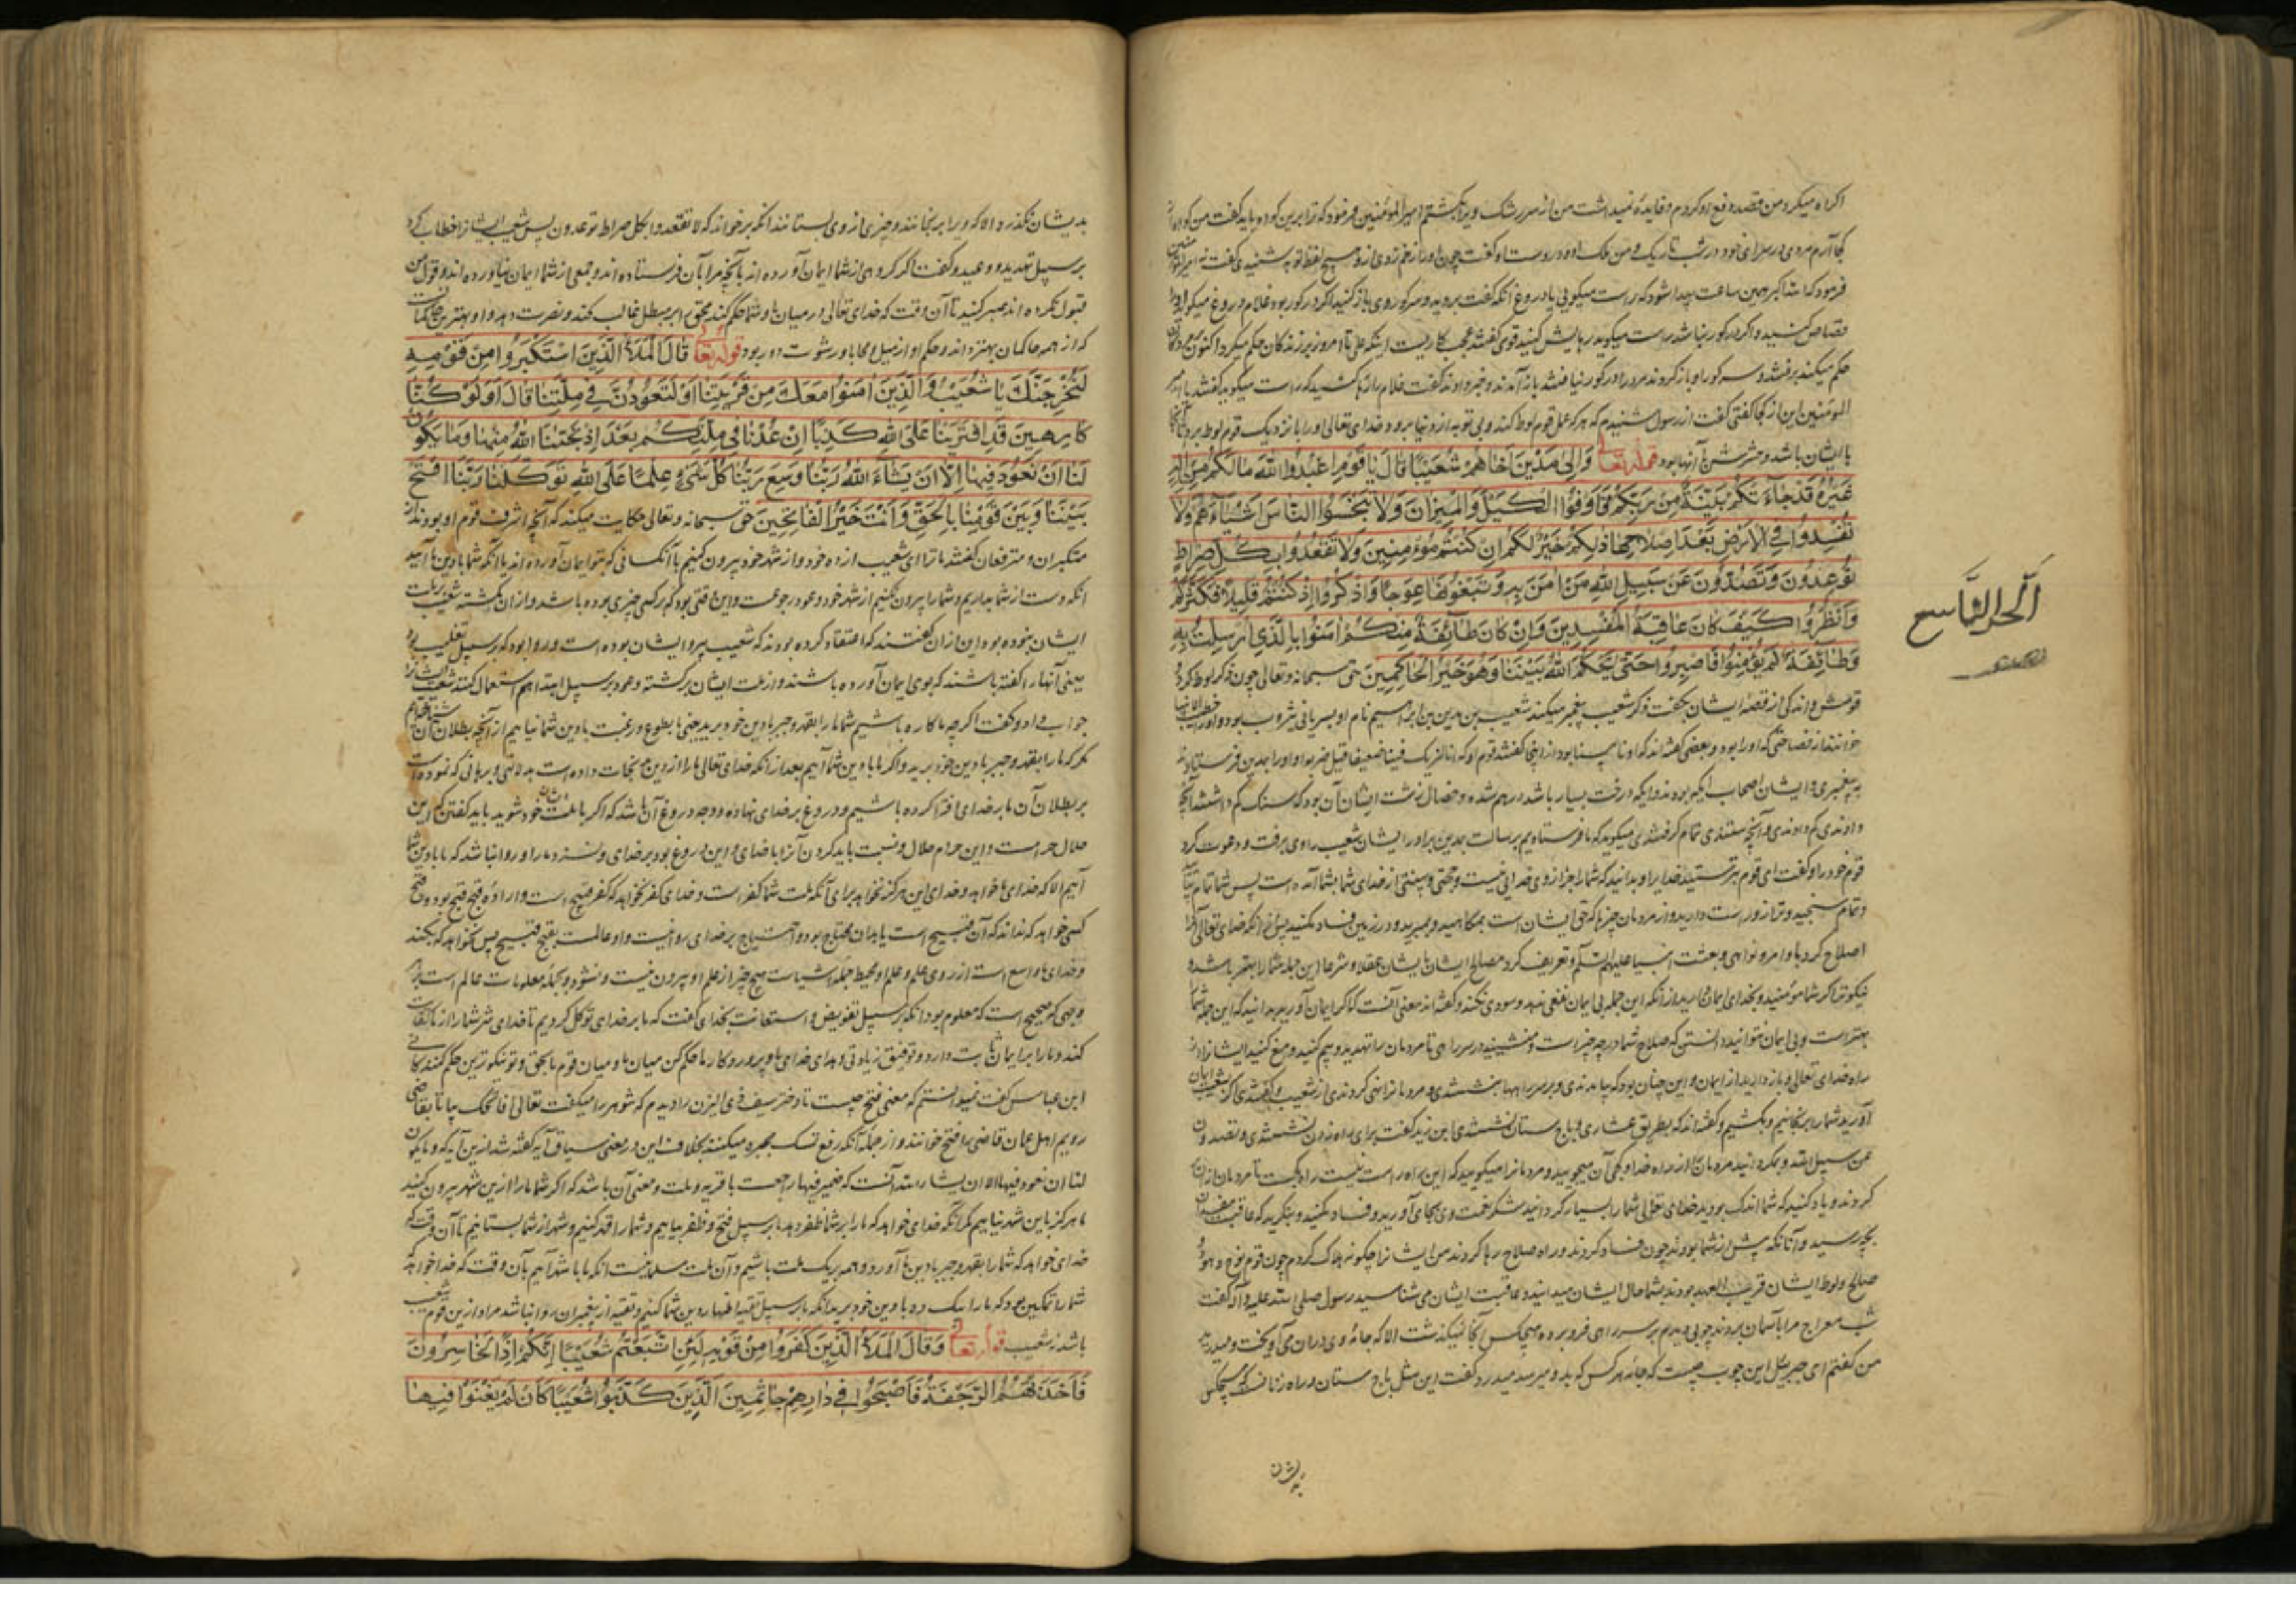 اکراه میکرد من قصد دفع او کردم و فایده نمیداشت من از سر رشک ویرا بکشتم امیر المؤمنین فرمود که ترا برین کواه باید گفت من کواه از
کجا آرم مردی در سرای خود در شب تاریک
فرمود که انشاء الله همین ساعت پیدا شود که راست میکوئی یا دروغ آنکه گفت بروید و سر کور وی باز کنید اگر در کور بود غلام دروغ میکوید او را
قصاص کنید و اگر در کور نباشد راست میکوید رهایش کنید قومی گفتند عجب کاریست اینکه علی تا امروز بر زندکان حکم میکرد اکنون بر مردکان
حکم میکند برفتند و سر کور او باز کردند مرد در کور نیافتند باز آمدند و خبر دادند گفت غلام را رها کنید که راست میکوید گفتند یا امیر
المؤمنین این از کجا گفتی گفت از رسول شنیدم که هر که عمل قوم لوط کند و بی توبه از دنیا برود خدای تعالی او را بنزدیک قوم لوط برد تا آنجا
با ایشان باشد و حشرش با آنها بود قوله تعالی وَاِلیٰ مَدْیَنَ اَخَاهُمْ شُعَیْبًا قَالَ یَا قَوْمِ اعْبُدُوا اللّٰهَ مَا لَکُمْ مِنْ اِلٰهٍ
غَیْرُهُ قَدْ جَاءَتْکُمْ بَیِّنَةٌ مِنْ رَبِّکُمْ فَاَوْفُوا الْکَیْلَ وَالْمِیزَانَ وَلَا تَبْخَسُوا النَّاسَ اَشْیَاءَهُمْ وَلَا
تُفْسِدُوا فِی الْاَرْضِ بَعْدَ اِصْلَاحِهَا ذٰلِکُمْ خَیْرٌ لَکُمْ اِنْ کُنْتُمْ مُؤْمِنِینَ وَلَا تَقْعُدُوا بِکُلِّ صِرَاطٍ
تُوعِدُونَ وَتَصُدُّونَ عَنْ سَبِیلِ اللّٰهِ مَنْ اٰمَنَ بِهِ وَتَبْغُونَهَا عِوَجًا وَاذْکُرُوا اِذْ کُنْتُمْ قَلِیلًا فَکَثَّرَکُمْ
وَانْظُرُوا کَیْفَ کَانَ عَاقِبَةُ الْمُفْسِدِینَ وَاِنْ کَانَ طَائِفَةٌ مِنْکُمْ اٰمَنُوا بِالَّذِی اُرْسِلْتُ بِهِ
وَطَائِفَةٌ لَمْ یُؤْمِنُوا فَاصْبِرُوا حَتّٰی یَحْکُمَ اللّٰهُ بَیْنَنَا وَهُوَ خَیْرُ الْحَاکِمِینَ حق سبحانه و تعالی چون ذکر لوط کرد و
قومش و اندکی از قصهٔ ایشان بگفت ذکر شعیب پیغمبر میکند شعیب بن مدین بن ابراهیم نام او بسریانی بود و او را خطیب الانبیا
خوانند از فصاحتی که او را بود و بعضی گفته اند که او نابینا بود از اینجا گفتند قوم او که انا لنریک فینا ضعیفا
به پیغمبری و ایشان اصحاب ایکه بودند و ایکه درخت بسیار باشد در هم شده و خصال زشت ایشان آن بود که سنک کم داشتند آنچه
دادندی کم دادندی و آنچه ستدندی تمام گرفتندی میکوید که ما فرستادیم برسالت بمدین برادر ایشان شعیب را وی برفت و دعوت کرد
قوم خود را و گفت ای قوم بپرستید خدایرا و بدانید که شما را جز از وی خدائی نیست و حجتی و بینتی از خدای شما بشما آمده است پس شما
و تمام سنجید و ترازو راست دارید و از مردمان چیزها که حق ایشان است بمکاهید و مبرید و در زمین فساد مکنید پس از آنکه خدای تعالی آنرا
اصلاح کرد باوامر و نواهی و بعثت انبیا علیهم السلام و تعریف کرد مصالح ایشان بایشان عقلا و شرعا این جمله شما را بهتر باشد و
نیکوتر اگر شما مؤمنید و بخدای ایمان دارید از آنکه این جمله بی ایمان نفعی ندهد و سودی نکند و گفته اند معنی آنست که اگر ایمان آورید بدانید که این جمله شما
بهتر است و بی ایمان نتوانید دانستن که صلاح شما در چه چیز است و منشینید در سر راهی تا مردمان را تهدید و بیم کنید و منع کنید ایشانرا از
راه خدای تعالی و باز دارید از ایمان و این چنان بود که بیامدندی و بر سر راهها بنشستندی و مردمانرا نهی کردندی از شعیب و گفتندی اگر بشعیب ایمان
آورید شما را برنجانیم و بکشیم و گفته اند که بطریق عشاری و باج ستان نشستندی ابن زید گفت برای راه زدن نشستندی و تصدون
عن سبیل الله و بمکردانید مردمان را از راه خدا و کجی آن میجویید و مردمانرا میکویید که این راه راست نیست
کردند و یاد کنید که شما اندک بودید خدای تعالی شما را بسیار کردانید شکر نعمت وی بجای آورید و فساد مکنید و بنکرید که عاقبت مفسدان
بچه رسید و آنانکه پیش از شما بودند چون فساد کردند و راه صلاح رها کردند من ایشانرا چکونه هلاک کردم چون قوم نوح و هود و
صالح و لوط ایشان قریب العهد بودند بشما حال ایشان میدانید و عاقبت ایشان می شناسید رسول صلی الله علیه و آله گفت
شب معراج مرا بآسمان بردند چوبی دیدم بر سر راهی فرو برده هیچکس آنجا نمیکذشت الا که جامهٔ وی در آن می آویخت و میدرید
من گفتم ای جبرئیل این چوب چیست که جامه هر کس که بدو میرسد میدرد گفت این مثل باج ستان و راه زنانست که هیچکس
بدیشان
الحزب التاسع
بدیشان نکذرد الا که ویرا برنجانند و چیزی از وی بستانند آنکه برخواند که لا تقعدوا بکل صراط توعدون پس شعیب ایشانرا خطاب کرد
بر سبیل تهدید و وعید و گفت اگر گروهی از شما ایمان آورده اند بآنچه مرا بآن فرستاده اند و جمعی از شما ایمان نیاورده اند و قول من
قبول نکرده اند صبر کنید تا آن وقت که خدای تعالی در میان ما و شما حکم کند محق را بر مبطل غالب کند و نصرت دهد و او بهترین حاکمانست
که از همه حاکمان بهتر داند و حکم او از میل و محابا و رشوت دور بود قوله تعالی قَالَ الْمَلَاُ الَّذِینَ اسْتَکْبَرُوا مِنْ قَوْمِهِ
لَنُخْرِجَنَّکَ یَا شُعَیْبُ وَالَّذِینَ اٰمَنُوا مَعَکَ مِنْ قَرْیَتِنَا اَوْ لَتَعُودُنَّ فِی مِلَّتِنَا قَالَ اَوَلَوْ کُنَّا
کَارِهِینَ قَدِ افْتَرَیْنَا عَلَی اللّٰهِ کَذِبًا اِنْ عُدْنَا فِی مِلَّتِکُمْ بَعْدَ اِذْ نَجّٰینَا اللّٰهُ مِنْهَا وَمَا یَکُونُ
لَنَا اَنْ نَعُودَ فِیهَا اِلَّا اَنْ یَشَاءَ اللّٰهُ رَبُّنَا وَسِعَ رَبُّنَا کُلَّ شَیْءٍ عِلْمًا عَلَی اللّٰهِ تَوَکَّلْنَا رَبَّنَا افْتَحْ
بَیْنَنَا وَبَیْنَ قَوْمِنَا بِالْحَقِّ وَاَنْتَ خَیْرُ الْفَاتِحِینَ حق سبحانه و تعالی حکایت میکند که آنچه اشراف قوم او بودند از
متکبران و مترفعان گفتند ما ترا ای شعیب از ده خود و از شهر خود بیرون کنیم با آنکسانی که بتو ایمان آورده اند یا آنکه شما با دین ما آیید
آنکه دست از شما بداریم و شما را بیرون نکنیم از شهر خود و عود رجوعست و این وقتی بود که هر کسی چیزی بوده باشد و از آن بکشته شعیب بر ملت
ایشان نبوده بود این از آن گفتند که اعتقاد کرده بودند که شعیب پیرو ایشان بوده است و روا بود که بر سبیل تغلیب بود
یعنی آنها را گفته باشند که بوی ایمان آورده باشند و از ملت ایشان برکشته و عود بر سبیل ابتدا هم استعمال کنند شعیب ایشانرا
جواب داد و گفت اگر چه ما کاره باشیم شما ما را بقهر و جبر با دین خود برید یعنی ما بطوع و رغبت با دین شما نیاییم از آنچه بطلان آن شناخته ایم
مکر که ما را بقهر و جبر با دین خود برید و اگر ما با دین شما آییم بعد از آنکه خدای تعالی ما را از دین شما نجات داده است بدلالتی و برهانی که نموده است
بر بطلان آن ما بر خدای افترا کرده باشیم و دروغ بر خدای نهاده و وجه دروغ آن باشد که اگر با ملت ایشان خود شوید باید گفتن که این
حلال حرام است و این حرام حلال و نسبت باید کردن آنرا با خدای و این دروغ بود بر خدای و نسزد ما را و روا نباشد که ما با دین شما
آییم الا که خدای ما خواهد و خدای این هرکز نخواهد برای آنکه ملت شما کفر است و خدای کفر نخواهد که کفر قبیح است و ارادهٔ قبیح قبیح بود و قبیح
کسی خواهد که نداند که آن قبیح است یا بدان محتاج بود و احتیاج بر خدای روا نیست و او عالمست بقبح قبیح پس نخواهد که بکند
و خدای ما واسع است از روی علم و علم او محیط بجمله اشیاست هیچ چیز از علم او بیرون نیست و نشود و بجمله معلومات عالم است بر
وجهی که صحیح است که معلوم بود آنکه بر سبیل تفویض و استعانت بخدای گفت که ما بر خدای توکل کردیم تا خدای شر شما را از ما کفایت
کند و ما را بر ایمان ثابت دارد و توفیق زیادتی دهد ای خدای ما و پروردکار ما حکم کن میان ما و میان قوم ما بحق و تو نیکوترین حکم کنندکانی
ابن عباس گفت نمیدانستم که معنی فتح چیست تا دختر سیف ذی الیزن را دیدم که شوهر را میکفت تعالی افاتحک بیا تا بقاضی
رویم اهل عمان قاضی را فتاح خوانند و از جمله آنکه رفع تمسک مجبره میکنند بخلاف این در معنی سیاق آیه گفته شد ازین آیه که و ما یکون
لنا ان نعود فیها الا ان یشاء الله آنست که ضمیر فیها راجعست با قریه و ملت و معنی آن باشد که اگر شما ما را ازین شهر بیرون کنید
ما هرکز باین شهر نیاییم مکر آنکه خدای خواهد که ما را بر شما ظفر دهد ما بر سبیل فتح و ظفر بیاییم و شما را قهر کنیم و شهر از شما بستانیم تا آن وقت که
خدای خواهد که شما را بقهر و جبر با دین ما آورد و همه بر یک ملت باشیم و آن ملت مسلمانیست آنکه ما با شهر آییم بآن وقت که خدا خواهد که
شما را تمکین بود که ما را باکراه با دین خود برید آنکه ما بر سبیل تقیه اظهار دین شما کنیم و تقیه از پیغمبران روا نباشد مراد ازین قوم شعیب
باشد نه شعیب قوله تعالی وَقَالَ الْمَلَاُ الَّذِینَ کَفَرُوا مِنْ قَوْمِهِ لَئِنِ اتَّبَعْتُمْ شُعَیْبًا اِنَّکُمْ اِذًا لَخَاسِرُونَ
فَاَخَذَتْهُمُ الرَّجْفَةُ فَاَصْبَحُوا فِی دَارِهِمْ جَاثِمِینَ الَّذِینَ کَذَّبُوا شُعَیْبًا کَاَنْ لَمْ یَغْنَوْا فِیهَا